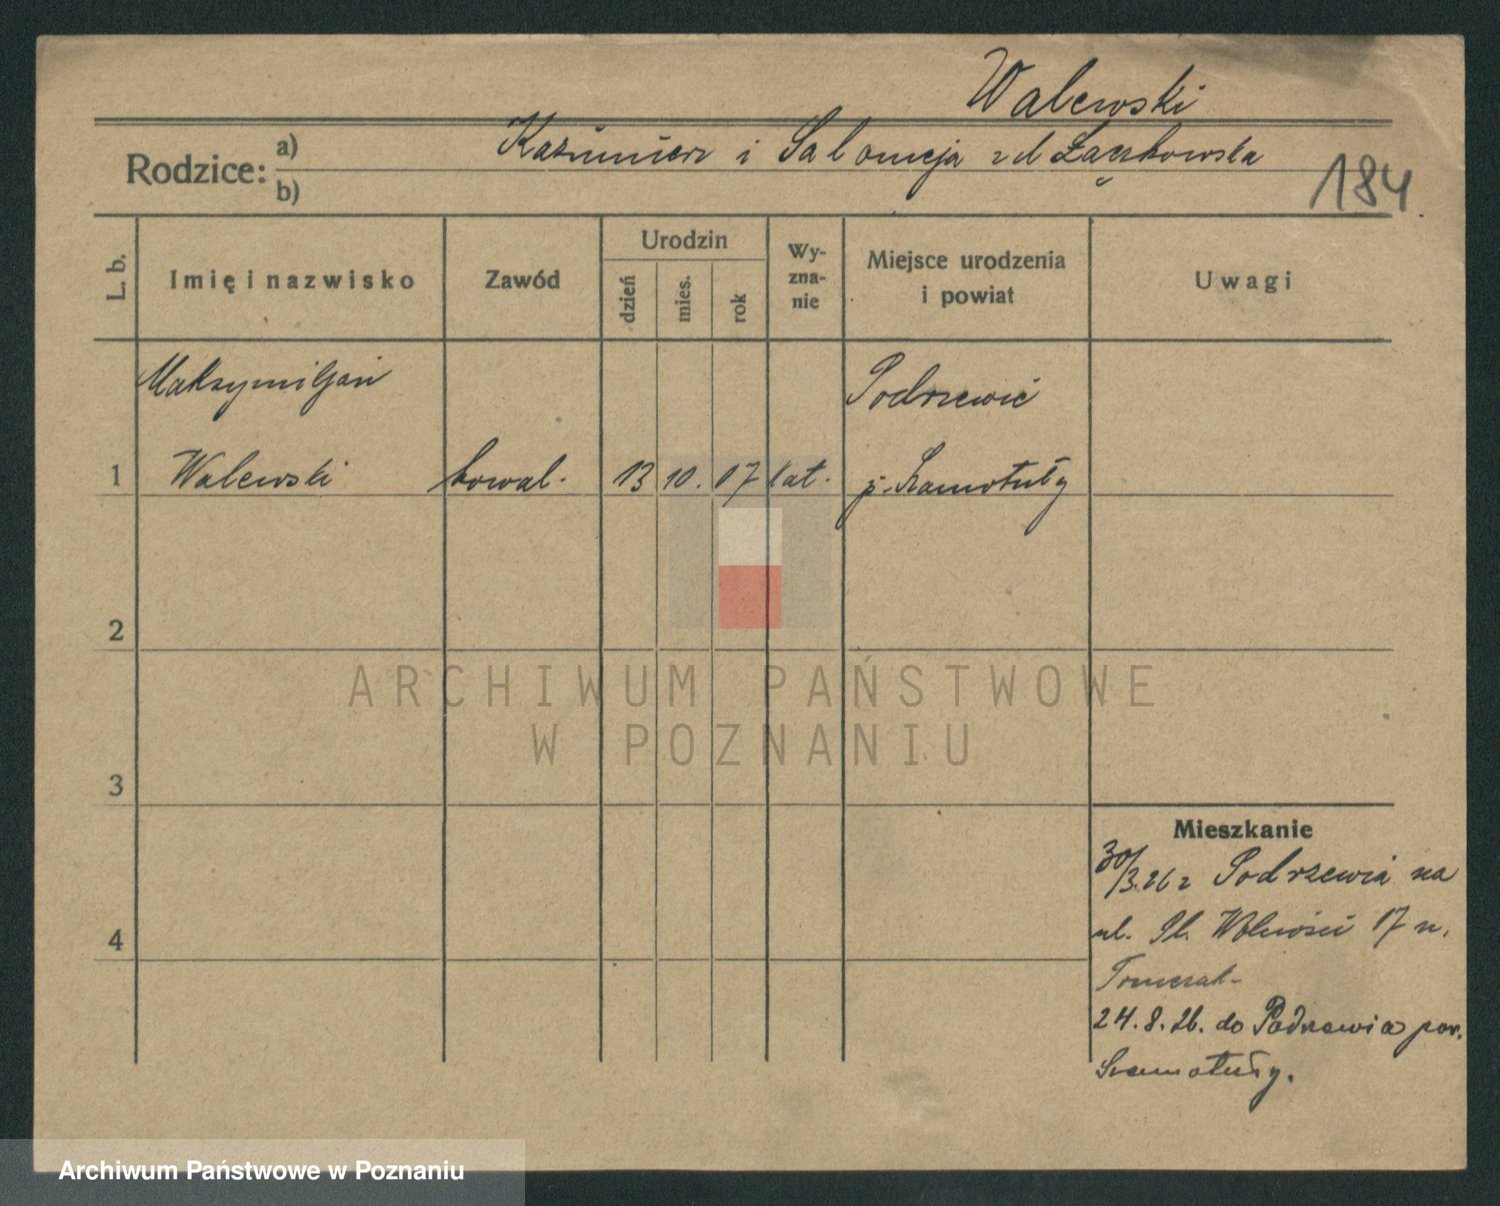 Walewski
Rodzice: a) Kazimierz i Salomeja z d Łączkowska
b)
184.
L. b.
Imię i nazwisko
Zawód
Urodzin
dzień
mies.
rok
Wy-
zna-
nie
Miejsce urodzenia
i powiat
Uwagi
Maksymiljan
Podrzewie
1 Walewski kowal. 13 10. 07 kat. p. Szamotuły
2
ARCHIWUM PAŃSTWOWE
W POZNANIU
3
Mieszkanie
30/3.26 z Podrzewia na
ul. Pl. Wolności 17 u.
4
24.8.26. do Podrzewia pow.
Szamotuły.
Archiwum Państwowe w Poznaniu